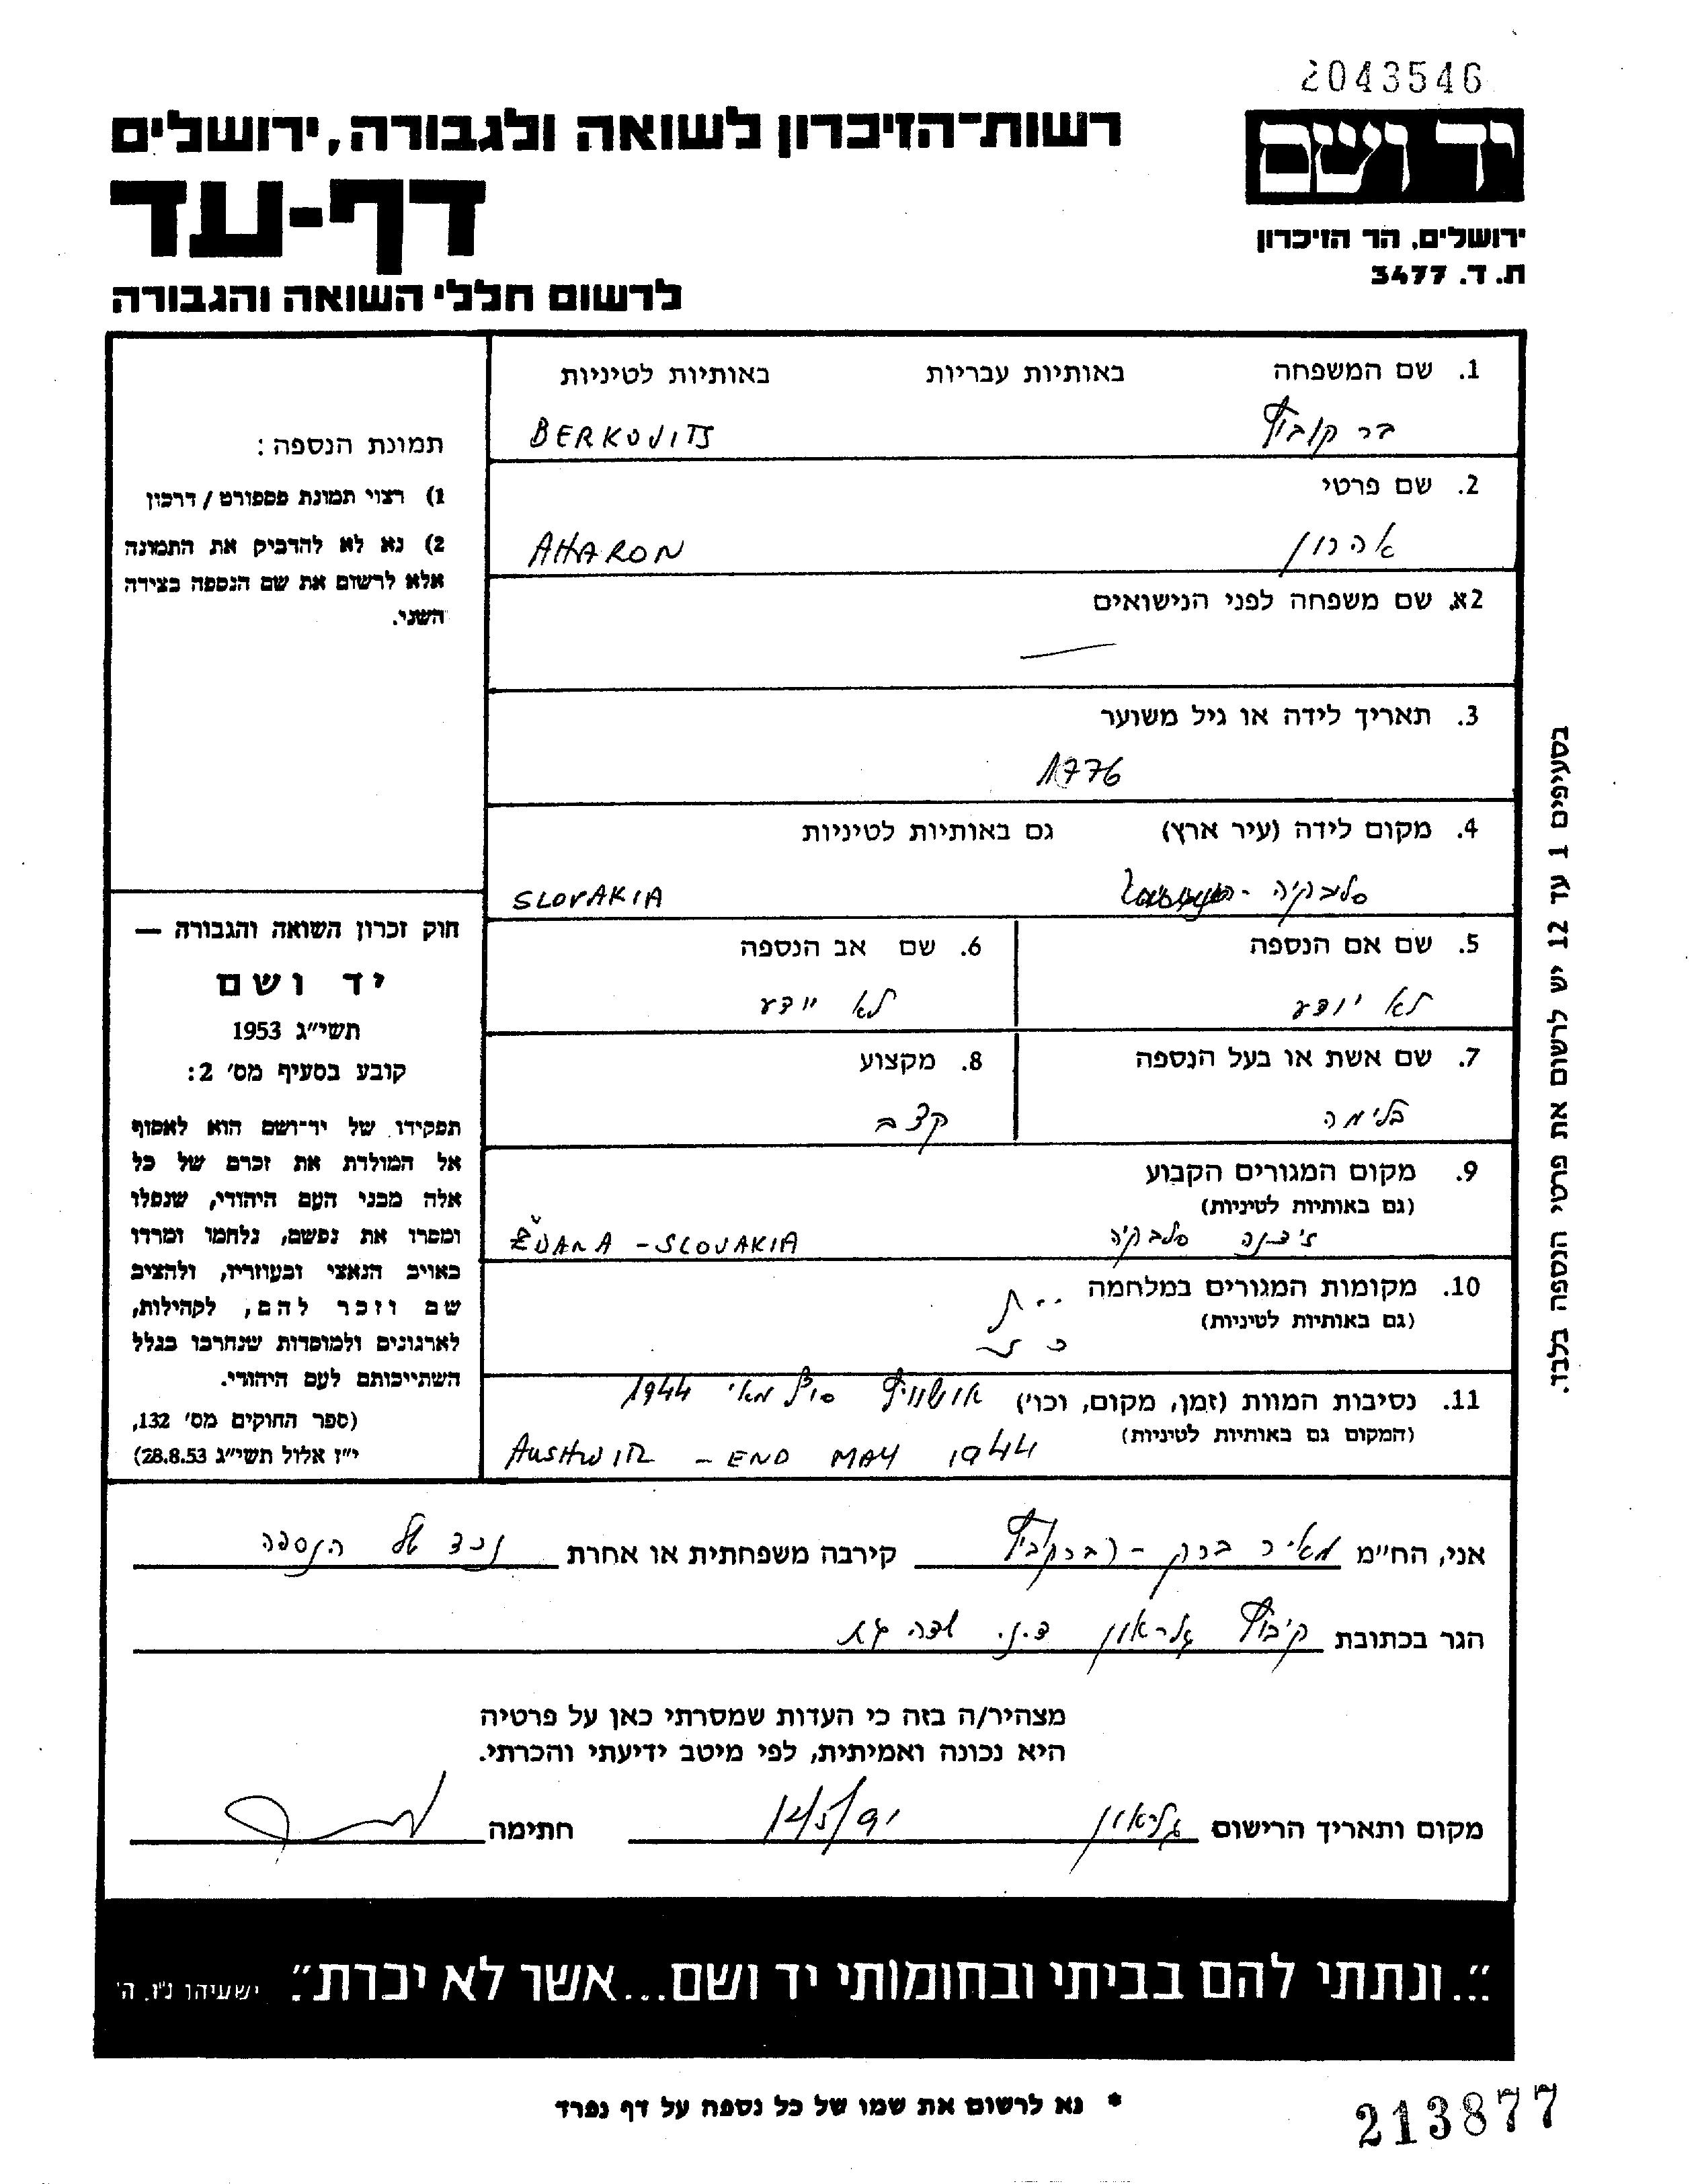 2043546
רשות-הזיכרון לשואה ולגבורה, ירושלים
יד ושם
דף-עד
ירושלים, הר הזיכרון
ת. ד. 3477
לרשום חללי השואה והגבורה
1. שם המשפחה באותיות עבריות באותיות לטיניות
ברקוביץ BERKOVITS
2. שם פרטי
אהרון AHARON
2א. שם משפחה לפני הנישואים
—
3. תאריך לידה או גיל משוער
1776
4. מקום לידה (עיר ארץ) גם באותיות לטיניות
סלובקיה - SLOVAKIA
5. שם אם הנספה 6. שם אב הנספה
לא יודע לא יידע
7. שם אשת או בעל הנספה 8. מקצוע
בלימה קצב
9. מקום המגורים הקבוע
(גם באותיות לטיניות)
ז'דנה סלבקיה ŽDANA - SLOVAKIA
10. מקומות המגורים במלחמה
(גם באותיות לטיניות)
11. נסיבות המוות (זמן, מקום, וכו') אושוויץ סוף מאי 1944
(המקום גם באותיות לטיניות) AUSHWITZ - END MAY 1944
תמונת הנספה:
1) רצוי תמונת פספורט / דרכון
2) נא לא להדביק את התמונה
אלא לרשום את שם הנספה בצידה
השני.
חוק זכרון השואה והגבורה —
יד ושם
תשי"ג 1953
קובע בסעיף מס' 2:
תפקידו של יד-ושם הוא לאסוף
אל המולדת את זכרם של כל
אלה מבני העם היהודי, שנפלו
ומסרו את נפשם, נלחמו ומרדו
באויב הנאצי ובעוזריו, ולהציב
שם וזכר להם, לקהילות,
לארגונים ולמוסדות שנחרבו בגלל
השתייכותם לעם היהודי.
(ספר החוקים מס' 132,
י"ז אלול תשי"ג 28.8.53)
בסעיפים 1 עד 12 יש לרשום את פרטי הנספה בלבד.
אני, הח"מ מאיר ברק - (ברקוביץ) קירבה משפחתית או אחרת נכד של הנספה
הגר בכתובת קיבוץ גלאון ד.נ. שדה גת
מצהיר/ה בזה כי העדות שמסרתי כאן על פרטיה
היא נכונה ואמיתית, לפי מיטב ידיעתי והכרתי.
מקום ותאריך הרישום גלאון 14/5/91 חתימה
"...ונתתי להם בביתי ובחומותי יד ושם...אשר לא יכרת". ישעיהו נ"ו, ה'
* נא לרשום את שמו של כל נספה על דף נפרד
213877